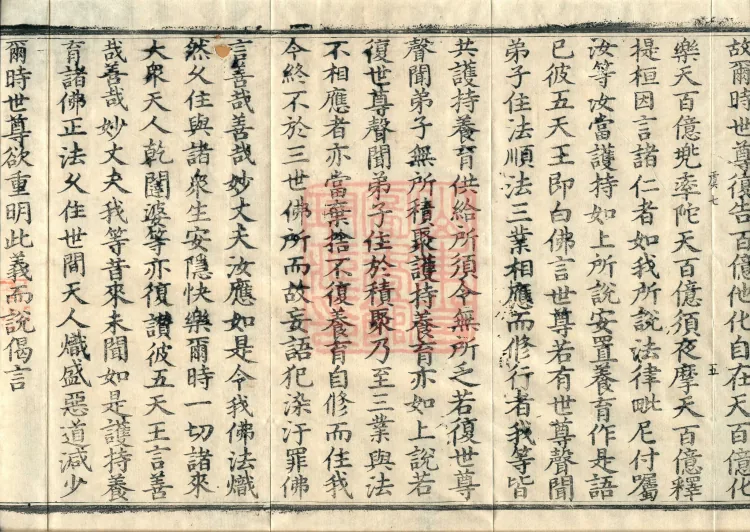 故爾時世尊復告百億他化自在天百億化
樂天百億兜率陀天百億須夜摩天百億釋
提桓因言諸仁者如我所說法律毗尼付囑
汝等汝當護持如上所說安置養育作是語
已彼五天王即白佛言世尊若有世尊聲聞
弟子住法順法三業相應而修行者我等皆
共護持養育供給所須令無所乏若復世尊
聲聞弟子無所積聚護持養育亦如上說若
復世尊聲聞弟子住於積聚乃至三業與法
不相應者亦當棄捨不復養育自修而住我
今終不於三世佛所而故妄語犯染汙罪佛
言善哉善哉妙丈夫汝應如是令我佛法熾
然久住與諸眾生安隱快樂爾時一切諸來
大眾天人乾闥婆等亦復讚彼五天王言善
哉善哉妙丈夫我等昔來未聞如是護持養
育諸佛正法久住世間天人熾盛惡道減少
爾時世尊欲重明此義而說偈言
虞七
五